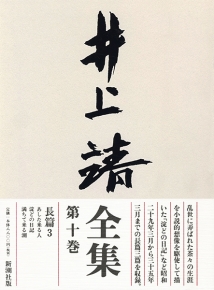 井上靖
全集
第十巻
乱世に弄ばれた茶々の生涯
を小説的想像を駆使して描
いた「淀どの日記」など昭和
二十九年三月から三十五年
三月までの長篇三篇を収録。
長篇3
あした来る人
淀どの日記
満ちて来る潮
新潮社版